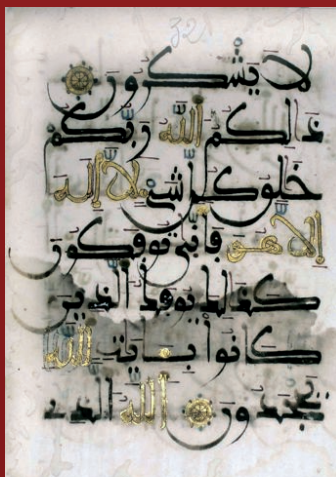 لا يشكرون
ذلكم الله ربكم
خلق كل شيء لا إله
إلا هو فأنى توفكون
كذلك يوفك الذين
كانوا بايت الله
يجحدون الله الذي